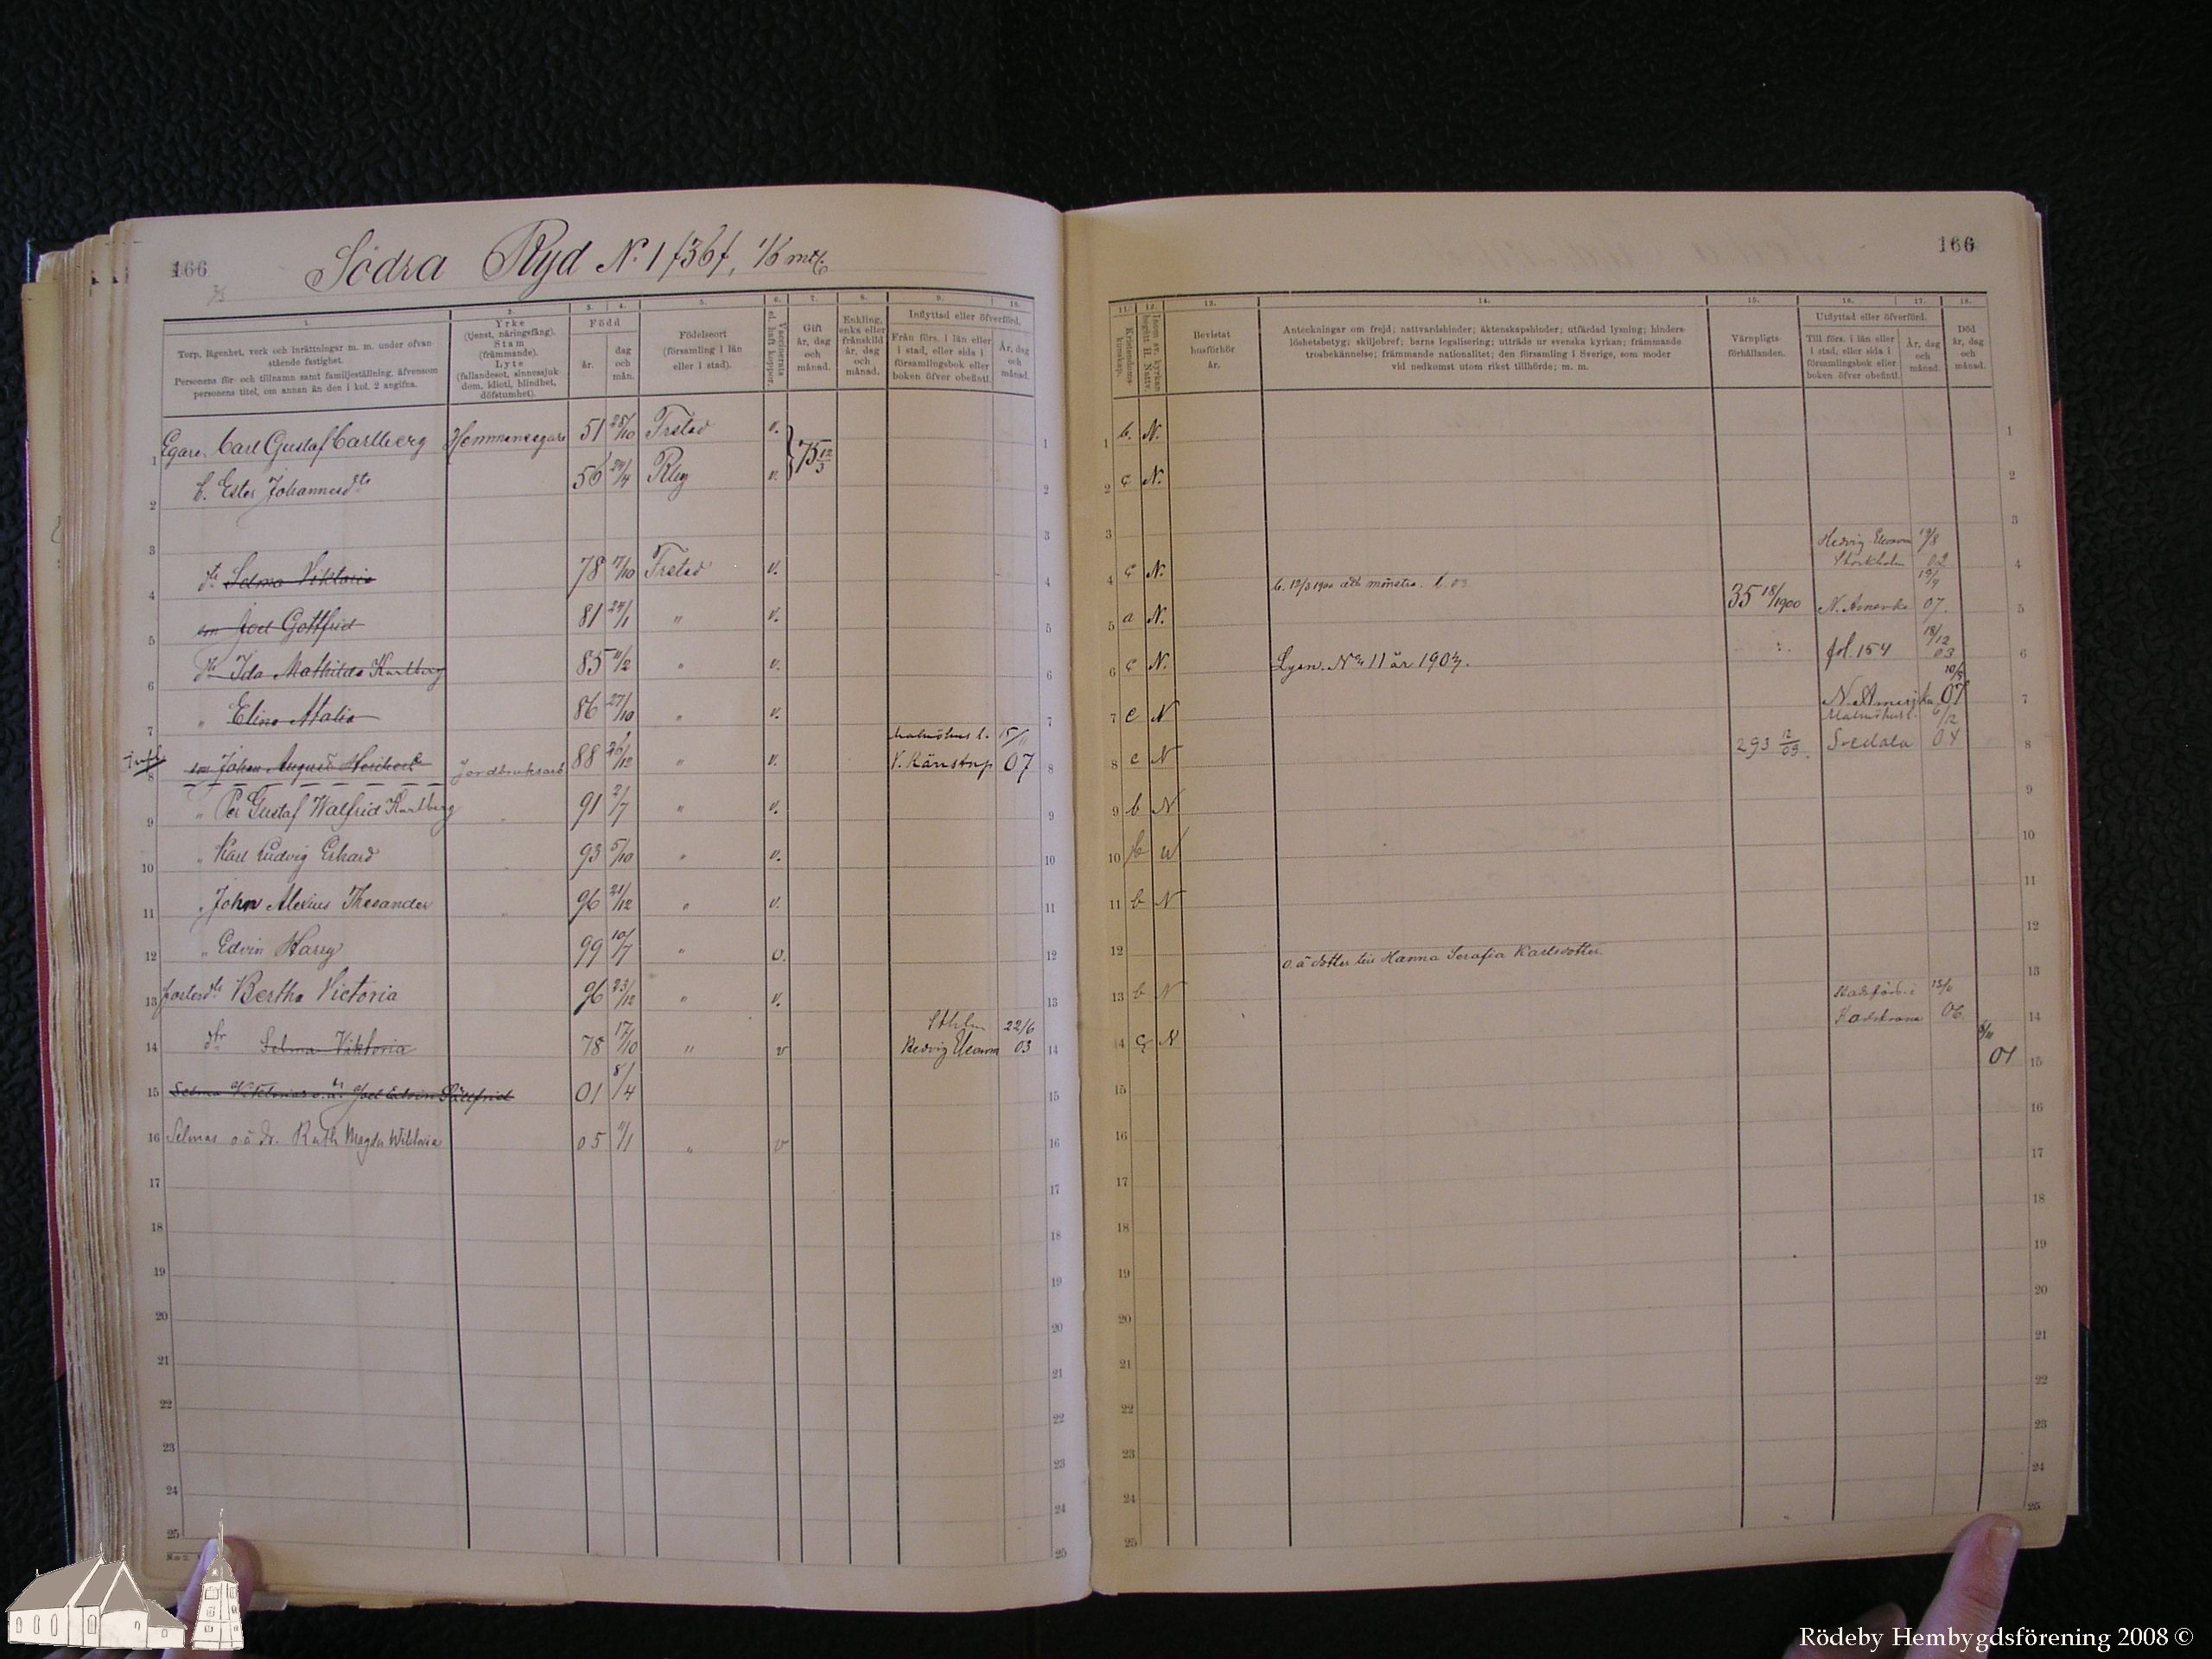 166
Södra Ryd N. 1 f36f, 1/6 mtl
1.
Torp, lägenhet, verk och inrättningar m. m. under ofvan-
stående fastighet.
Personens för- och tillnamn samt familjeställning, äfvensom
personens titel, om annan än den i kol. 2 angifna.
2.
Yrke
(tjenst, näringsfång).
Stam
(främmande).
Lyte
(fallandesot, sinnessjuk-
dom, idioti, blindhet,
döfstumhet).
3. 4.
Född
år.
dag
och
mån.
5.
Födelseort
(församling i län
eller i stad).
6.
Vaccinerats
el. haft koppor.
7.
Gift
år, dag
och
månad.
8.
Enkling,
enka eller
frånskild
år, dag
och
månad.
9. 10.
Inflyttad eller öfverförd.
Från förs. i län eller
i stad, eller sida i
församlingsbok eller
boken öfver obefintl.
År, dag
och
månad.
Egare, Carl Gustaf Carlberg Hemmansegare 51 25/10 Fristad v. 75 12/3
1
h. Ester Johannesdtr 56 24/4 v.
2
3
dtr Selma Viktoria 78 17/10 v.
4
son Joel Gottfrid 81 24/1 " v.
5
dtr Ida Mathilda Karlberg 85 11/2 " v.
6
" Elina Malia 86 27/10 " v.
7
Malmöhus l. 15/11
son Johan August Jordbruksarb 88 26/12 " v. V. Kärrstorp 07
8
" Per Gustaf Walfrid Karlberg 91 2/7 " v.
9
" Karl Ludvig Erhard 93 5/10 " v.
10
" John Alexius Thesander 96 21/12 " v.
11
" Edvin Harry 99 10/7 " v.
12
fosterdtr Bertha Victoria 96 23/12 " v.
13
Sthlm 22/6
dtr Selma Viktoria 78 17/10 " v Hedvig Eleonora 03
14
Selma Viktorias o.ä. Joel Edvin 01 8/4
15
16 Selmas o ä dr. Ruth Magda Wiktoria 05 11/1 " v
17
18
19
20
21
22
23
24
25
166
11. 12. 13. 14. 15. 16. 17. 18.
Kristendoms-
kunskap.
Inom sv. kyrkan
begått H. Nattv.
Bevistat
husförhör
år.
Anteckningar om frejd; nattvardshinder; äktenskapshinder; utfärdad lysning; hinders-
löshetsbetyg; skiljobref; barns legalisering; utträde ur svenska kyrkan; främmande
trosbekännelse; främmande nationalitet; den församling i Sverige, som moder
vid nedkomst utom riket tillhörde; m. m.
Värnpligts-
förhållanden.
Utflyttad eller öfverförd.
Till förs. i län eller
i stad, eller sida i
församlingsbok eller
boken öfver obefintl.
År, dag
och
månad.
Död
år, dag
och
månad.
1 b. N. 1
2 c N. 2
3 3
Hedvig Eleonora 19/8
4 c N. b. 12/3 1900 Stockholm 02 4
5 a N. 35 18/1900 N. Amerika 19/9 07. 5
6 c N. Lysn. No 11 år 1903. fol. 154 18/12 03 6
7 c N N. Amerika 10/5 07 7
Malmöhus l. 6/12
8 c N 293 12/09. Svedala 04 8
9 b N 9
10 b N 10
11 b N 11
12 o. ä dotter till Hanna Serafia Karlsdotter. 12
13 b N 13
14 c N Stadsförs. i Karlskrona 06 14
15 01 15
16 16
17 17
18 18
19 19
20 20
21 21
22 22
23 23
24 24
25 25
Rödeby Hembygdsförening 2008 ©